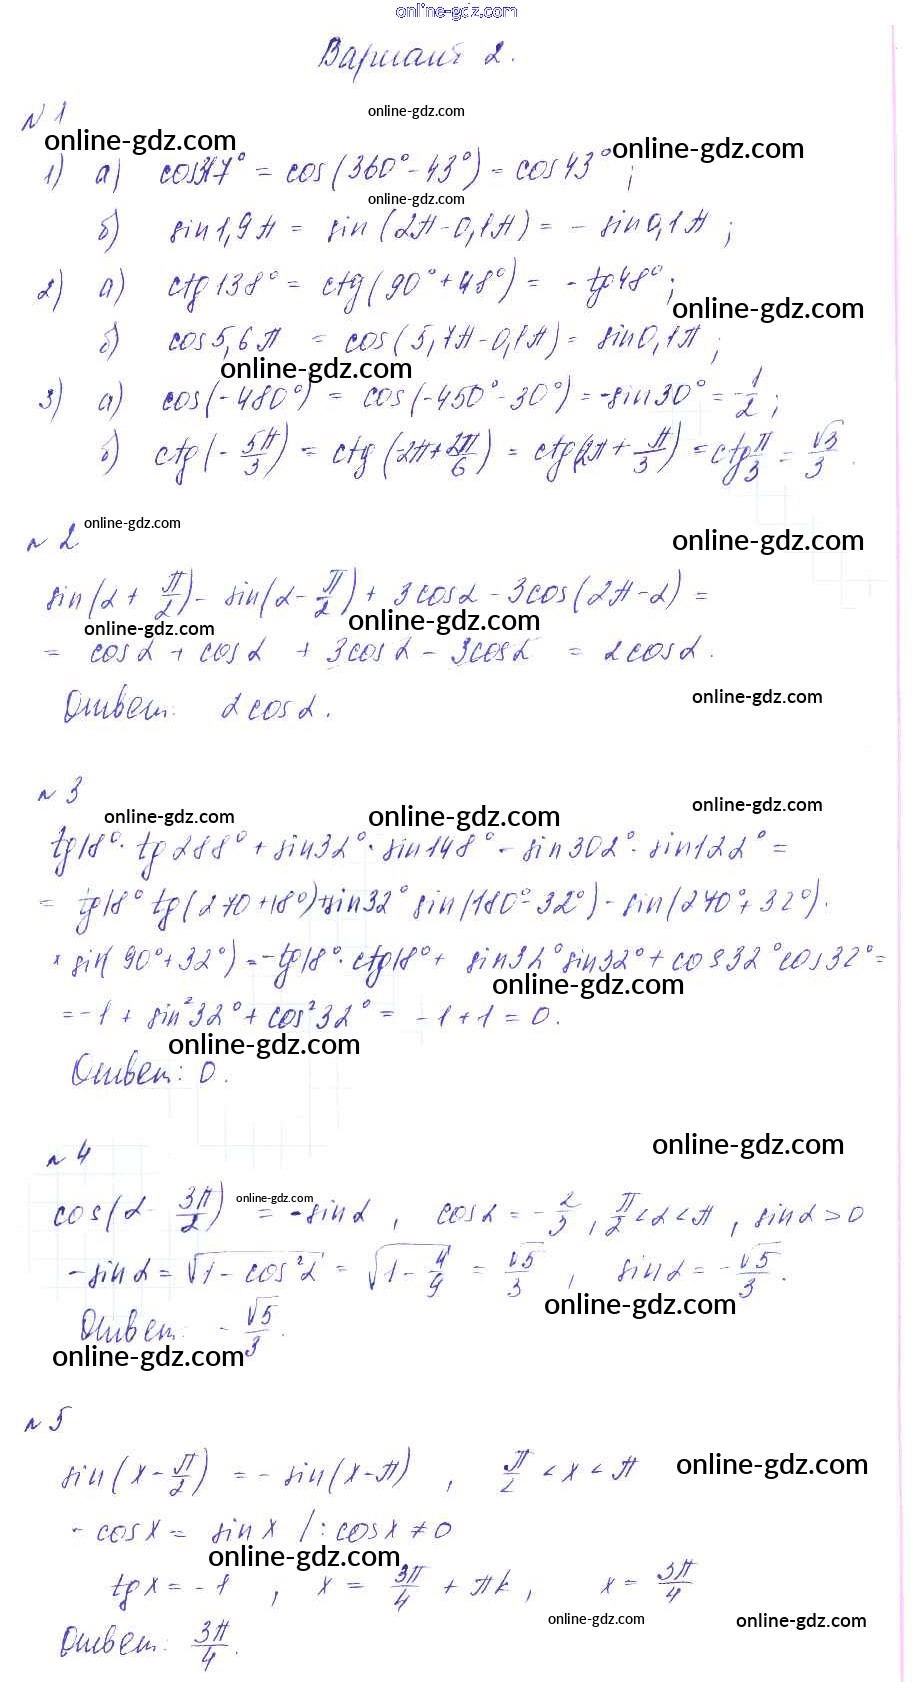 online-gdz.com
Вариант 2.
№ 1
online-gdz.com
online-gdz.com
online-gdz.com
1) а) cos317° = cos(360° - 43°) = cos43°;
online-gdz.com
б) sin1,9π = sin(2π - 0,1π) = - sin0,1π;
2) а) ctg138° = ctg(90° + 48°) = - tg48°;
online-gdz.com
б) cos5,6π = cos(5,7π - 0,1π) = sin0,1π;
online-gdz.com
3) а) cos(-480°) = cos(-450° - 30°) = -sin30° = -1/2;
б) ctg(-5π/3) = ctg(-2π + 2π/6) = ctg(2π + π/3) = ctg π/3 = √3/3.
online-gdz.com
№ 2
online-gdz.com
sin(α + π/2) - sin(α - π/2) + 3cosα - 3cos(2π - α) =
online-gdz.com
online-gdz.com
= cosα + cosα + 3cosα - 3cosα = 2cosα.
online-gdz.com
Ответ: 2cosα.
№ 3
online-gdz.com
online-gdz.com
online-gdz.com
tg18° · tg288° + sin32° · sin148° - sin302° · sin122° =
= tg18° tg(270 + 18°) + sin32° sin(180° - 32°) - sin(270° + 32°) ·
× sin(90° + 32°) = - tg18° · ctg18° + sin32° sin32° + cos32° cos32° =
online-gdz.com
= -1 + sin²32° + cos²32° = -1 + 1 = 0.
online-gdz.com
Ответ: 0.
online-gdz.com
№ 4
online-gdz.com
cos(α - 3π/2) = -sinα, cosα = -2/3, π/2 < α < π, sinα > 0
-sinα = √(1 - cos²α) = √(1 - 4/9) = √5/3, sinα = -√5/3.
online-gdz.com
Ответ: -√5/3.
online-gdz.com
№ 5
online-gdz.com
sin(x - π/2) = - sin(x - π), π/2 < x < π
- cosx = sinx /: cosx ≠ 0
online-gdz.com
tgx = -1, x = 3π/4 + πk, x = 3π/4
online-gdz.com
online-gdz.com
Ответ: 3π/4.